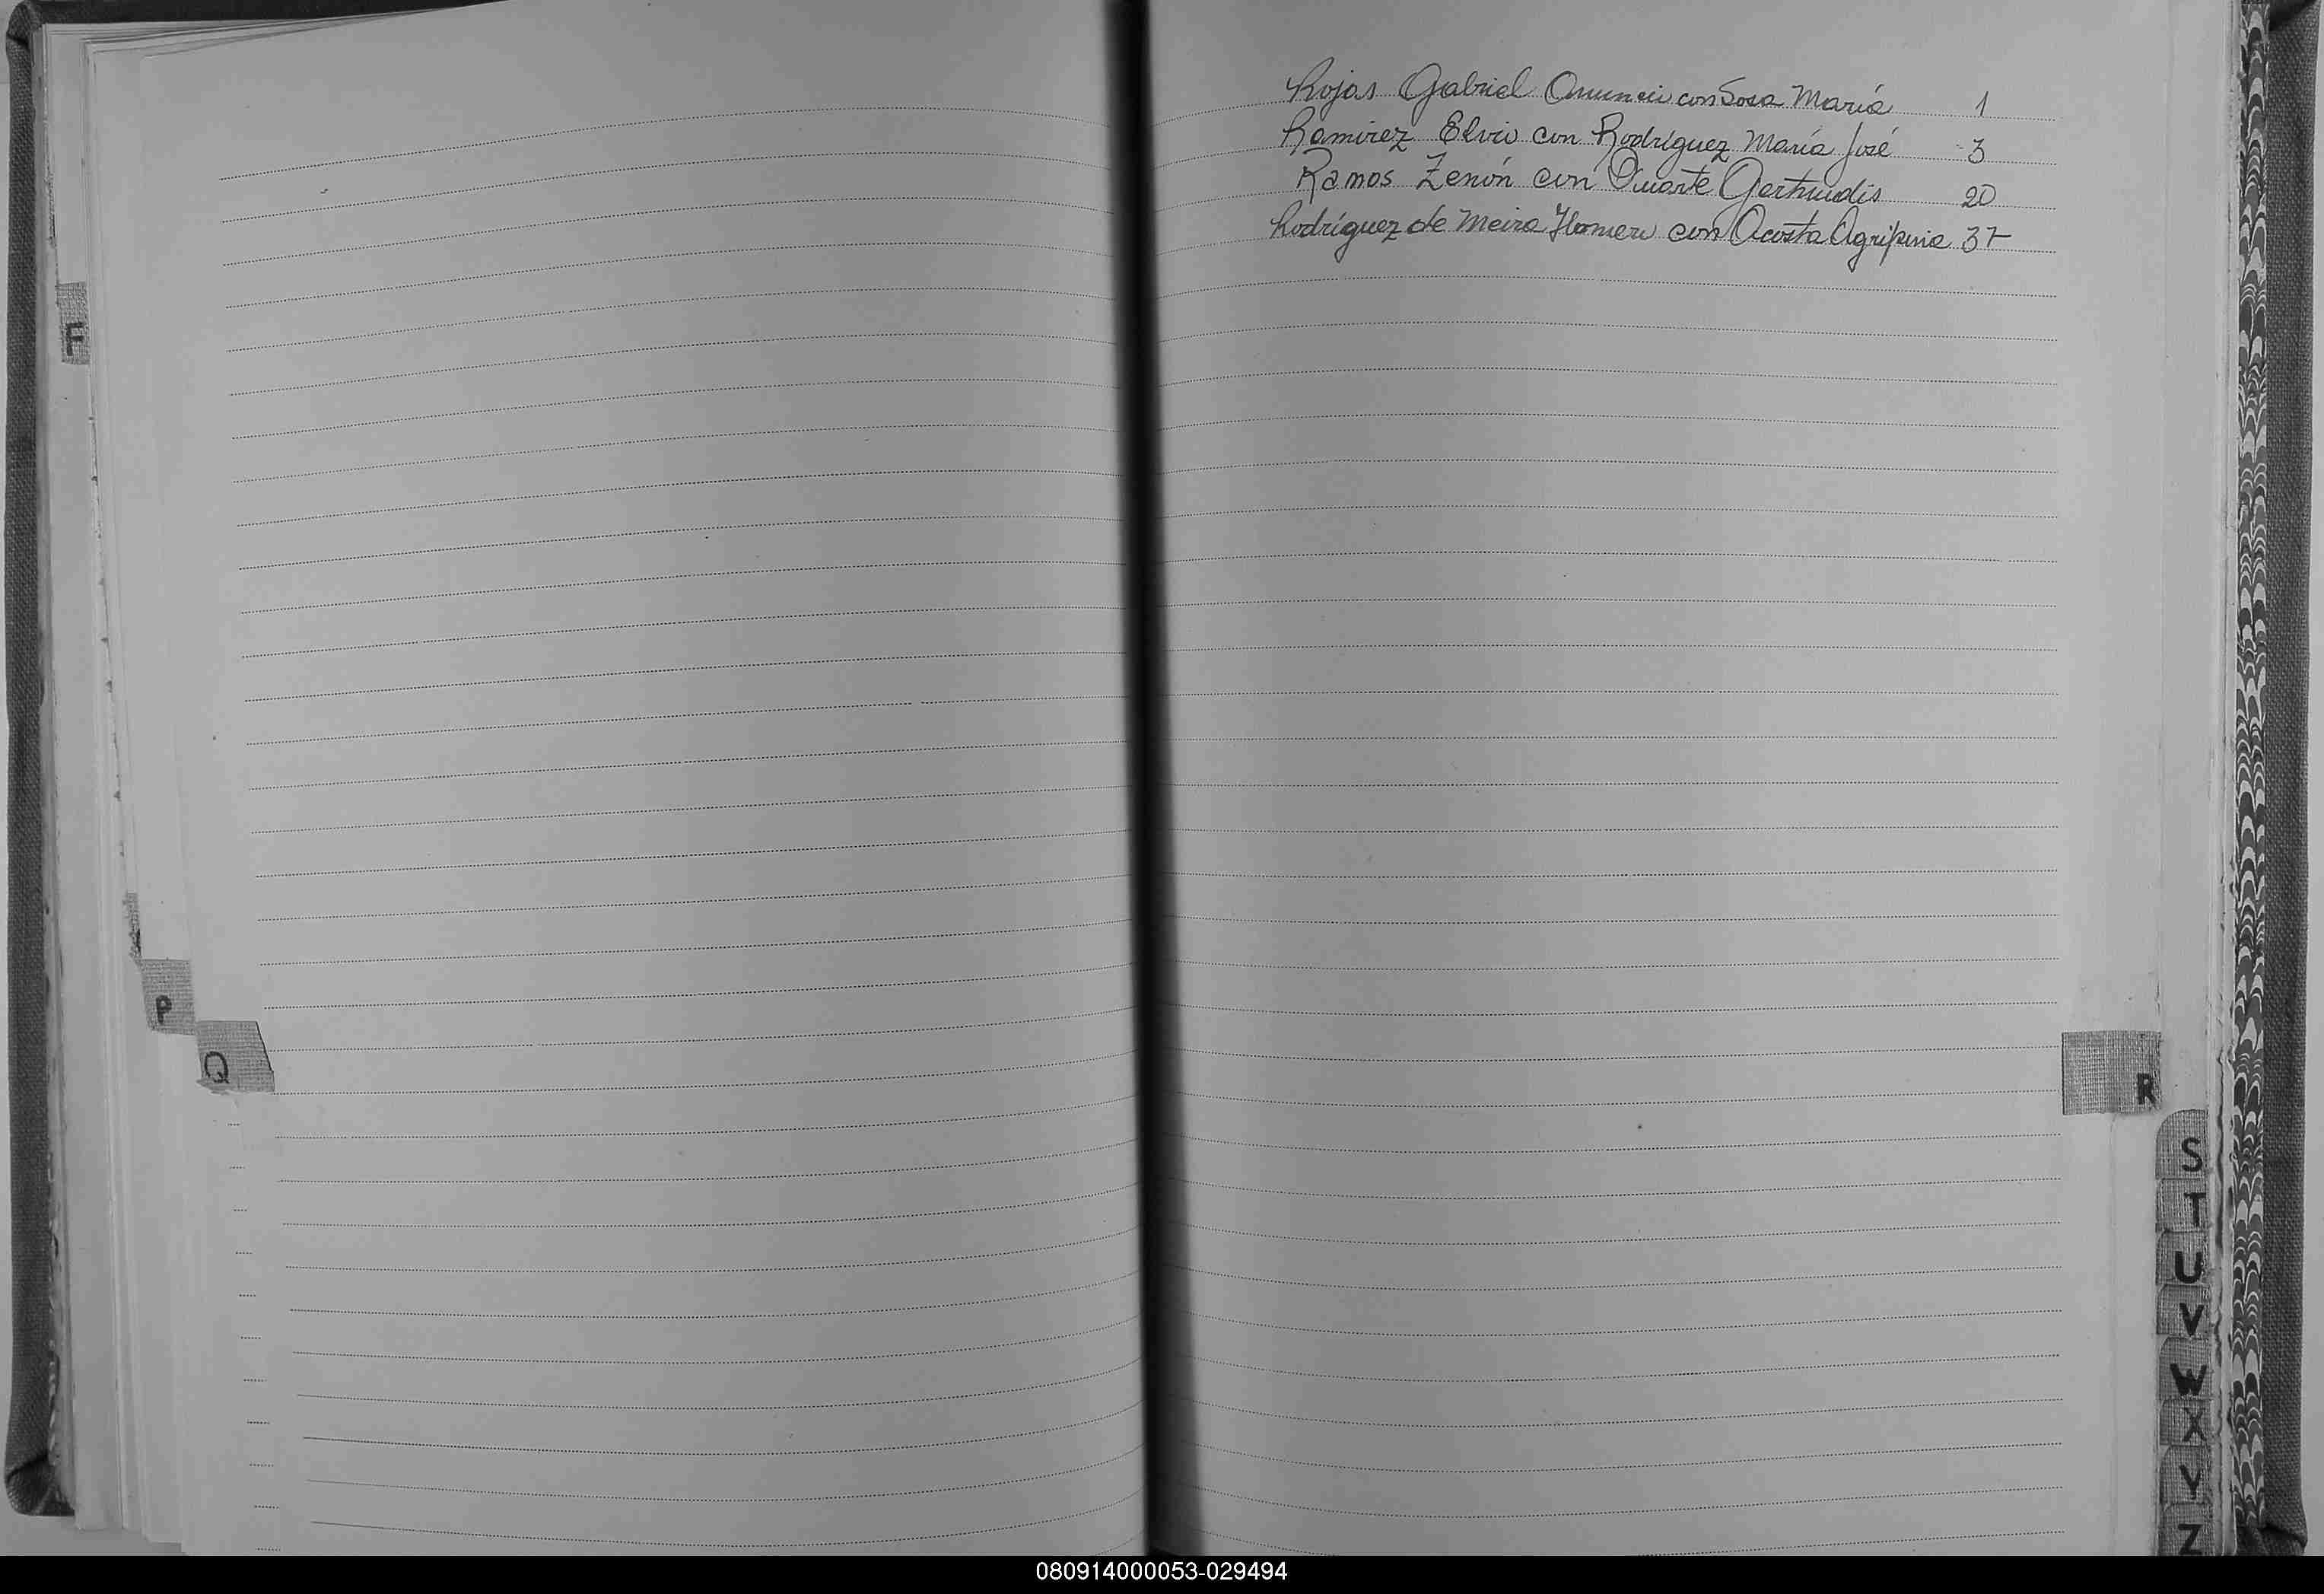 Rojas Gabriel con Sosa María 1
Ramirez Elvio con Rodríguez María José 3
Ramos Zenón con Duarte Gertrudis 20
Rodríguez de Meira Homero con Acosta Agripina 37
F
P
Q
R
S
T
U
V
W
X
Y
Z
080914000053-029494